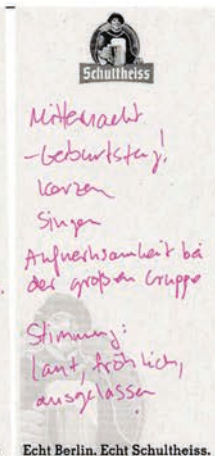 Schultheiss
Mitternacht
- Geburtstag!
Kerzen
Singen
Aufmerksamkeit bei
der großen Gruppe
Stimmung:
laut, fröhlich,
ausgelassen
Echt Berlin. Echt Schultheiss.